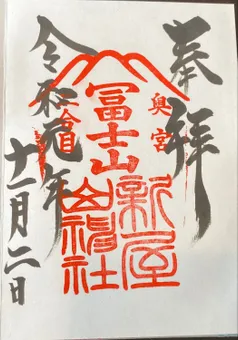 奉拝
奥宮
冨士山
新屋
山神社
二合目
令和元年
十一月二日